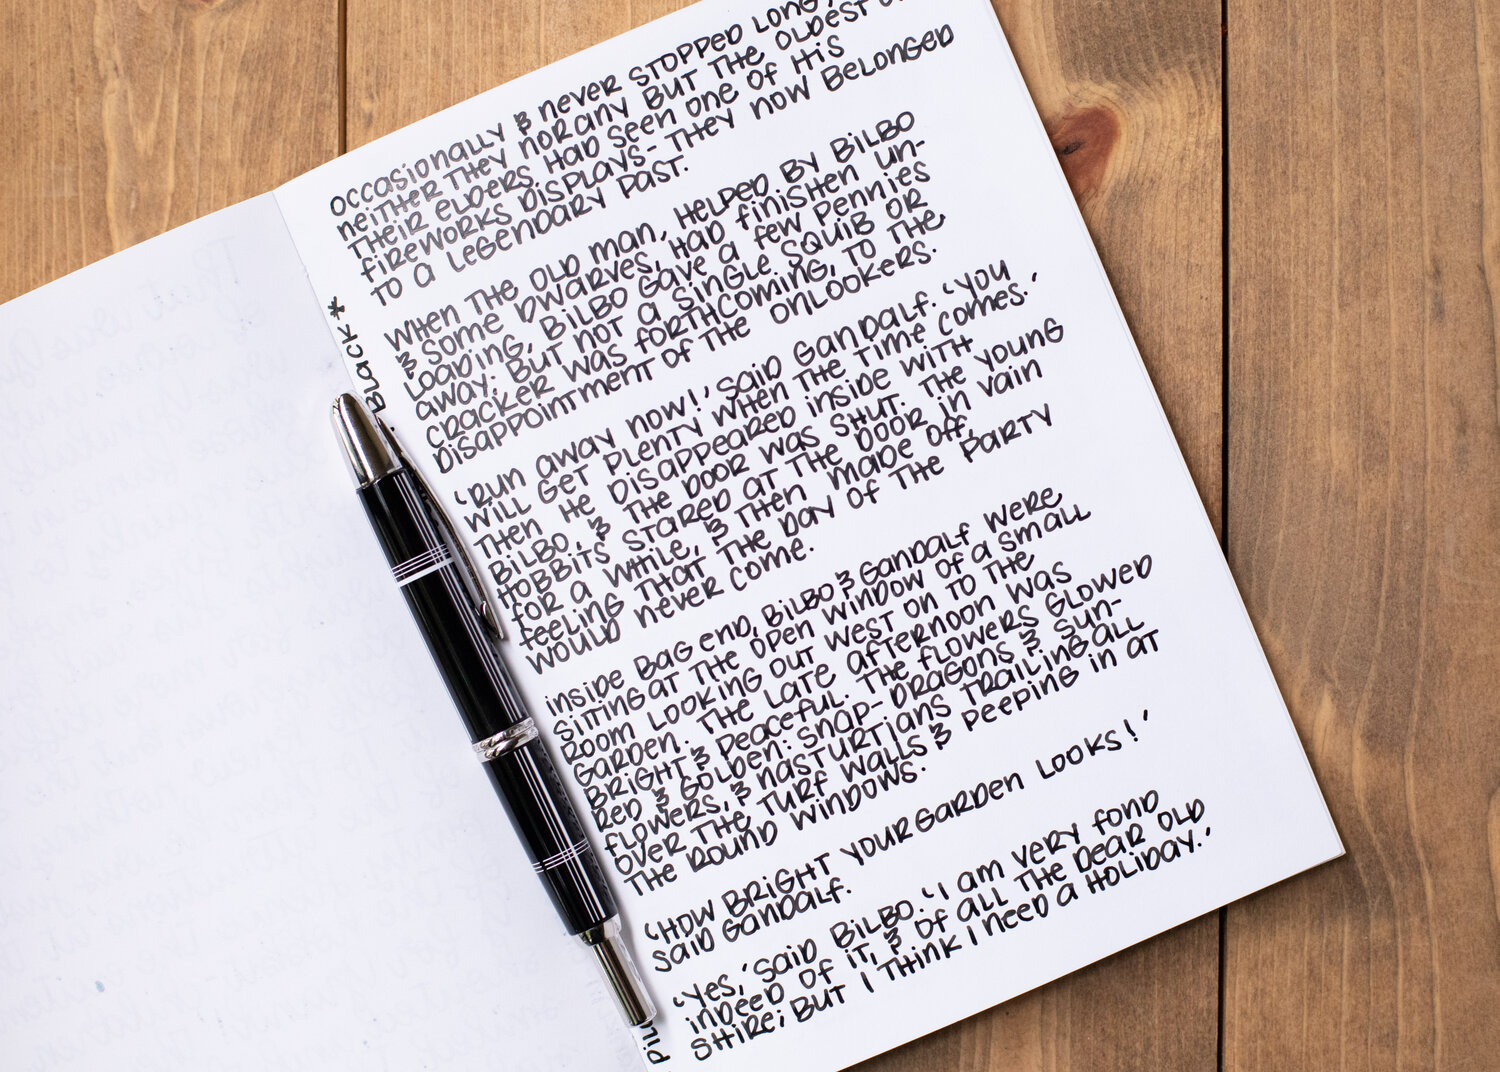 occasionally & never stopped long,
neither they nor any but the oldest
their elders had seen one of his
fireworks displays - they now belonged
to a legendary past.
When the old man, helped by Bilbo
& some dwarves, had finishen un-
loading, Bilbo gave a few pennies
away; but not a single squib or
cracker was forthcoming, to the
disappointment of the onlookers.
'Run away now!' said Gandalf. 'You
will get plenty when the time comes.'
Then he disappeared inside with
Bilbo, & the door was shut. The young
hobbits stared at the door in vain
for a while, & then made off,
feeling that the day of the party
would never come.
Inside Bag End, Bilbo & Gandalf were
sitting at the open window of a small
room looking out west on to the
garden. The late afternoon was
bright & peaceful. The flowers glowed
red & golden: snap-dragons & sun-
flowers, & nasturtians trailing all
over the turf walls & peeping in at
the round windows.
'How bright your garden looks!'
said Gandalf.
'Yes,' said Bilbo. 'I am very fond
indeed of it, & of all the dear old
Shire; but I think I need a holiday.'
Black *